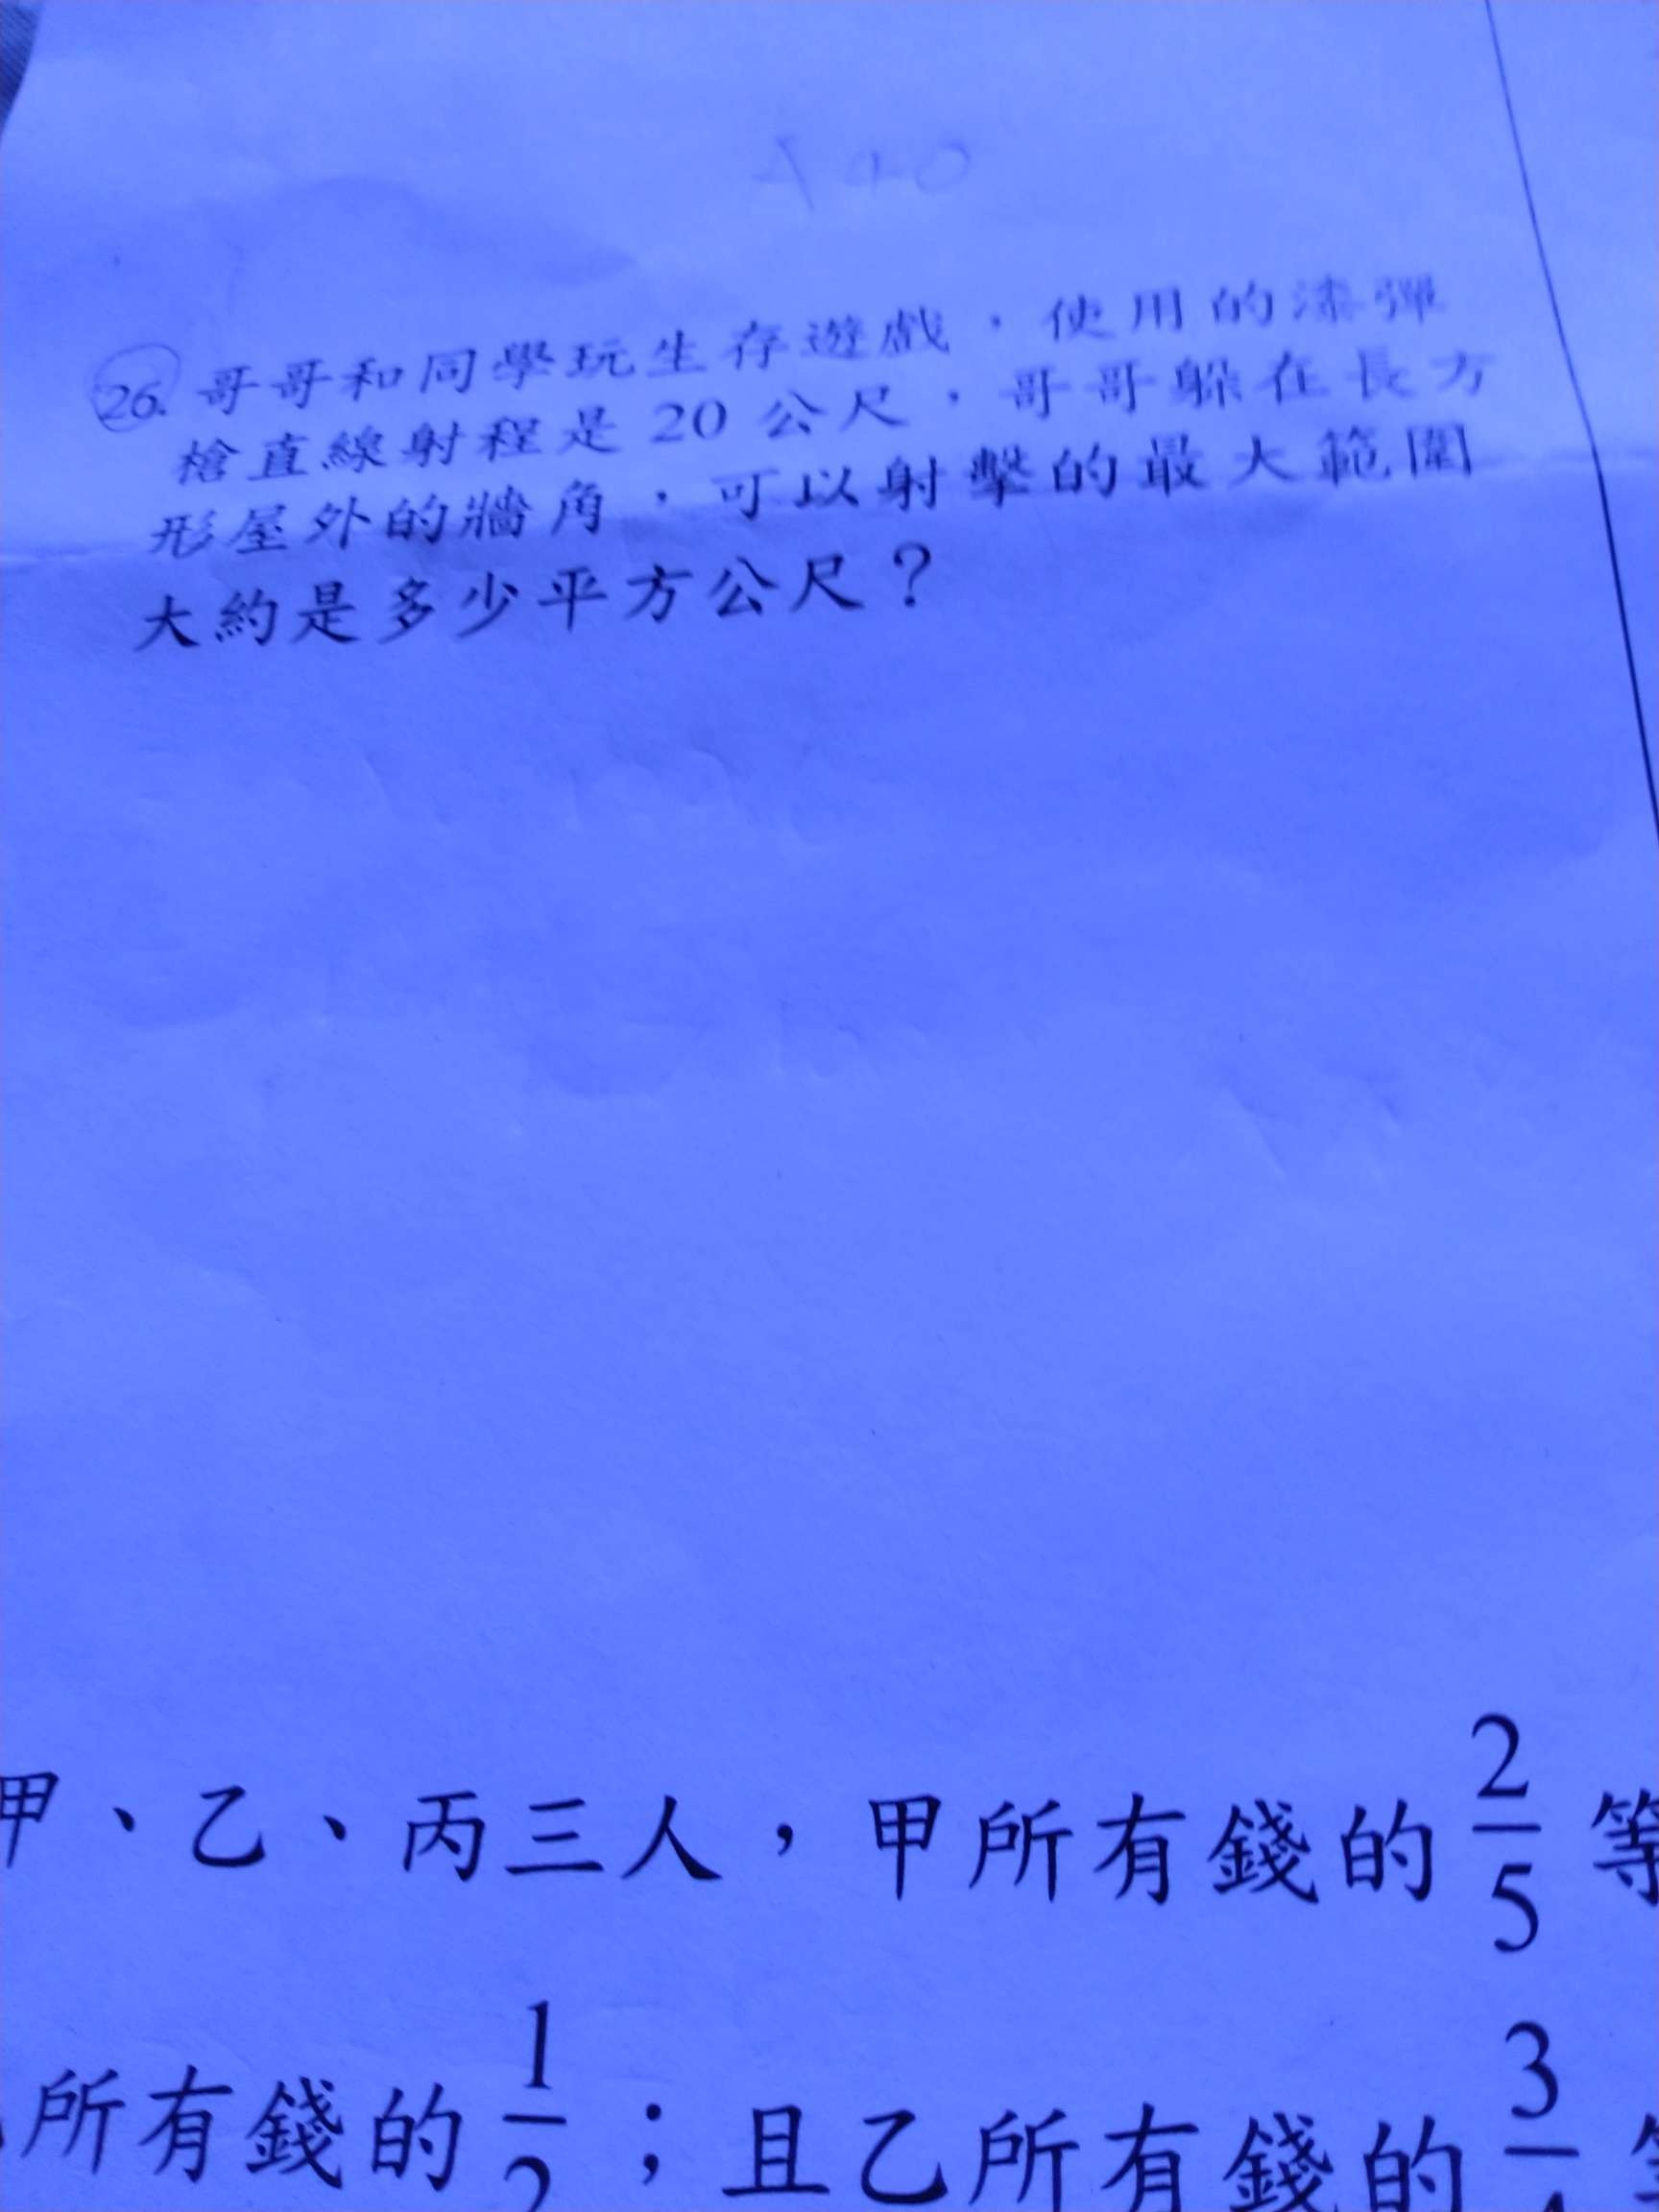 26. 哥哥和同學玩生存遊戲，使用的漆彈
槍直線射程是 20 公尺，哥哥躲在長方
形屋外的牆角，可以射擊的最大範圍
大約是多少平方公尺？
甲、乙、丙三人，甲所有錢的 2/5 等
所有錢的 1/2；且乙所有錢的 3/4